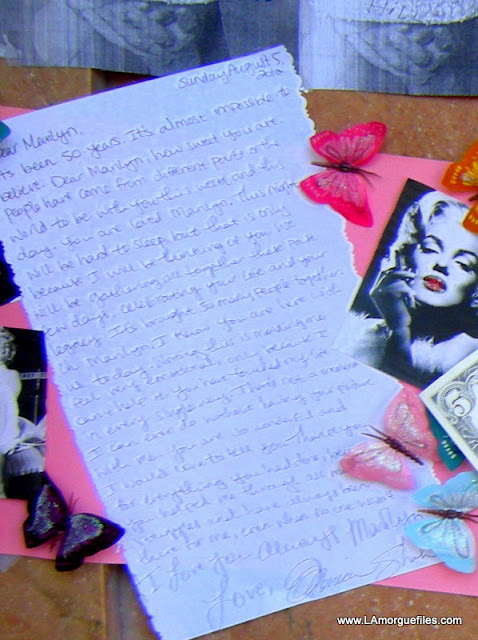 Sunday August 5,
2012
Dear Marilyn,
Its been 50 years. It's almost impossible to
believe. Dear Marilyn, how sweet you are.
People have come from different parts of the
world to be with you this week and this
day. You are loved Marilyn. This night
will be hard to sleep, but that is only
because I will be thinking of you. We
will be gathering together these past
few days, celebrating your life and your
legacy. It's brought so many people together.
Oh Marilyn I know you are here with
us today. Writing this is making me
feel very emotional, only because I
in every single day. There's not a moment
I can ever do without having you
with me. you are so wonderful and
I would love to tell you, thank you
for everything you had done, because
you helped me through all my
struggles and have always been
there for me, even when no one wasn't.
I Love You Always Marilyn
Love,
www.LAmorguefiles.com